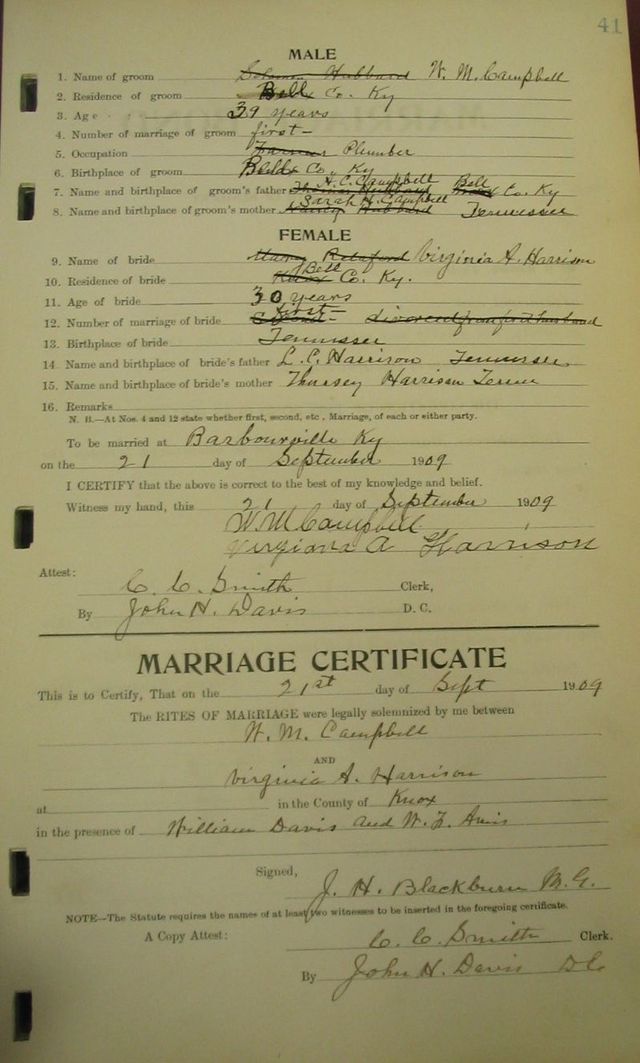 41
MALE
1. Name of groom Solomon Hubbard W. M. Campbell
2. Residence of groom Bell Co. Ky
3. Age 39 years
4. Number of marriage of groom first-
5. Occupation Farmer Plumber
6. Birthplace of groom Bell Co., Ky
7. Name and birthplace of groom's father H. C. Campbell Bell Co. Ky
8. Name and birthplace of groom's mother Sarah H. Campbell Nancy Hubbard Tennessee
FEMALE
9. Name of bride Virginia A. Harrison
10. Residence of bride Knox Bell Co. Ky.
11. Age of bride 30 years
12. Number of marriage of bride first- Second- divorced from first husband
13. Birthplace of bride Tennessee
14. Name and birthplace of bride's father L. C. Harrison Tennessee
15. Name and birthplace of bride's mother Thursey Harrison Tenn
16. Remarks
N. B.—At Nos. 4 and 12 state whether first, second, etc., Marriage, of each or either party.
To be married at Barbourville Ky
on the 21 day of September 1909
I CERTIFY that the above is correct to the best of my knowledge and belief.
Witness my hand, this 21 day of September 1909
W. M. Campbell
Virginia A Harrison
Attest:
C. C. Smith Clerk,
By John H. Davis D. C.
MARRIAGE CERTIFICATE
This is to Certify, That on the 21st day of Sept 1909
The RITES OF MARRIAGE were legally solemnized by me between
W. M. Campbell
AND
Virginia A. Harrison
at in the County of Knox
in the presence of William Davis and W. F. Amis
Signed,
J. H. Blackburn M. G.
NOTE—The Statute requires the names of at least two witnesses to be inserted in the foregoing certificate.
A Copy Attest: C. C. Smith Clerk.
By John H. Davis D.C.